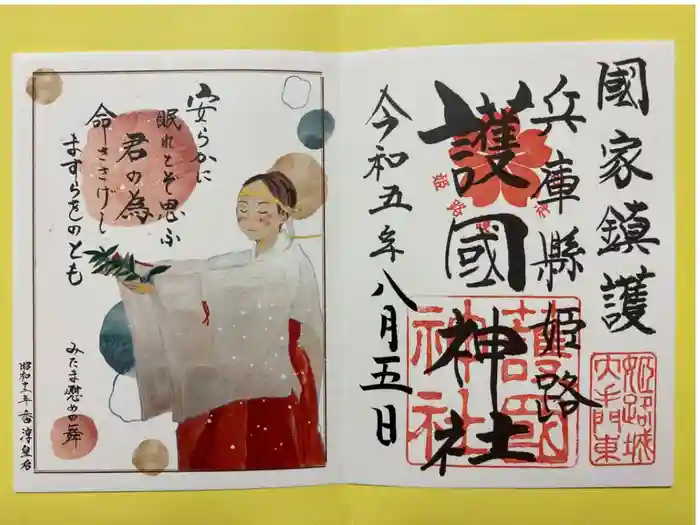 國家鎮護
兵庫縣姫路
護國神社
令和五年八月五日
護國
神社
姫路城
大手門東
安らかに
眠れとぞ思ふ
君の為
命ささげし
ますらをのとも
みたま慰めの舞
香淳皇后